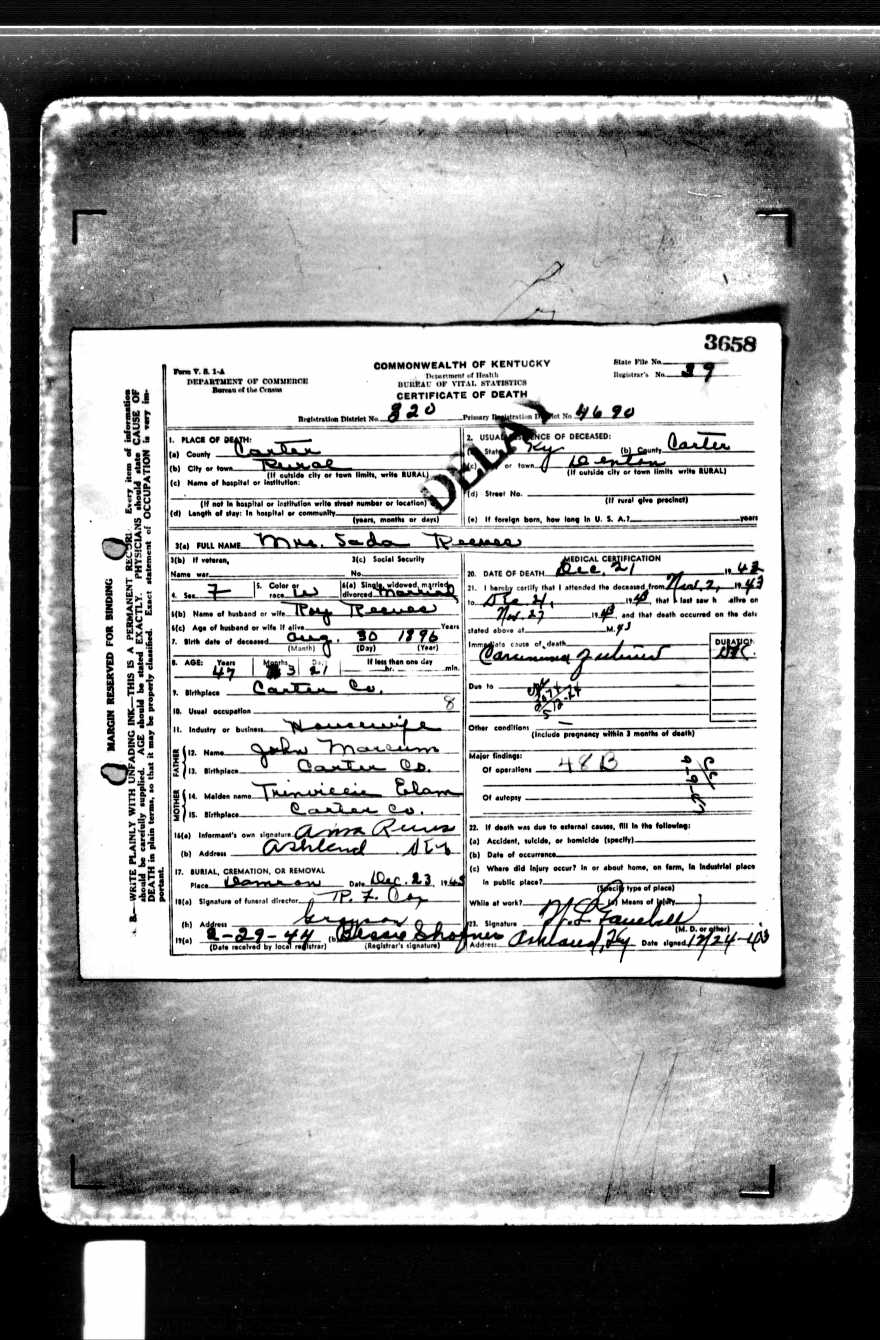 3658
Form V. S. 1-A
DEPARTMENT OF COMMERCE
Bureau of the Census
COMMONWEALTH OF KENTUCKY
Department of Health
BUREAU OF VITAL STATISTICS
CERTIFICATE OF DEATH
State File No.
Registrar's No. 39
Registration District No. 820 Primary Registration District No. 4690
DELAY
MARGIN RESERVED FOR BINDING
B.—WRITE PLAINLY WITH UNFADING INK—THIS IS A PERMANENT RECORD. Every item of information
should be carefully supplied. AGE should be stated EXACTLY. PHYSICIANS should state CAUSE OF
DEATH in plain terms, so that it may be properly classified. Exact statement of OCCUPATION is very im-
portant.
1. PLACE OF DEATH:
(a) County Carter
(b) City or town Rural
(If outside city or town limits, write RURAL)
(c) Name of hospital or institution:
(If not in hospital or institution write street number or location)
(d) Length of stay: In hospital or community
(years, months or days)
2. USUAL RESIDENCE OF DECEASED:
State Ky (b) County Carter
(c) or town Denton
(If outside city or town limits write RURAL)
(d) Street No.
(If rural give precinct)
(e) If foreign born, how long in U. S. A.? years
3(a) FULL NAME Mrs. Sada Reeves
3(b) If veteran, 3(c) Social Security
Name war No.
4. Sex F 5. Color or race W 6(a) Single, widowed, married, divorced Married
6(b) Name of husband or wife Roy Reeves
6(c) Age of husband or wife if alive Years
7. Birth date of deceased Aug. 30 1896
(Month) (Day) (Year)
8. AGE: Years Months Days If less than one day
47 3 21 hr. min.
9. Birthplace Carter Co.
10. Usual occupation 8
11. Industry or business Housewife
FATHER
12. Name John Marcum
13. Birthplace Carter Co.
MOTHER
14. Maiden name Elam
15. Birthplace Carter Co
16(a) Informant's own signature Anna
(b) Address Ashland Ky
17. BURIAL, CREMATION, OR REMOVAL
Place Date Dec. 23, 1943
18(a) Signature of funeral director R. F.
(b) Address Grayson
19(a) 2-29-44 (b) Bessie
(Date received by local registrar) (Registrar's signature)
MEDICAL CERTIFICATION
20. DATE OF DEATH Dec. 21 1943
21. I hereby certify that I attended the deceased from Nov. 2, 1943
to Dec 21, 1943, that I last saw h alive on
Nov. 27 1943, and that death occurred on the date
stated above at M.
Immediate cause of death DURATION
Carcinoma
Due to
Other conditions —
(Include pregnancy within 3 months of death)
Major findings:
Of operations 48B
Of autopsy
22. If death was due to external causes, fill in the following:
(a) Accident, suicide, or homicide (specify)
(b) Date of occurrence
(c) Where did injury occur? In or about home, on farm, in industrial place
in public place?
(Specify type of place)
While at work? (e) Means of injury
23. Signature
(M. D. or other)
Address Ashland, Ky Date signed 12/24-43